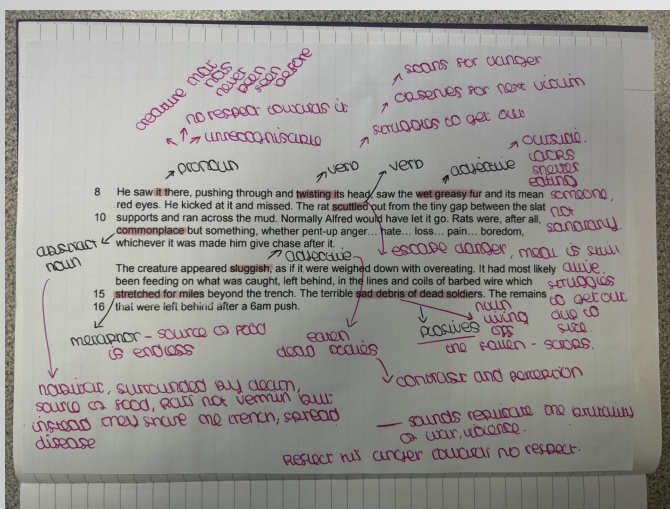 creature that
has
never
been
seen
before
no respect towards it
unrecognisable
scans for danger
observes for next victim
struggles to get out
pronoun
verb
verb
adjective
outside.
lacks
shelter
eating
someone,
not
sanatary.
8 He saw it there, pushing through and twisting its head, saw the wet greasy fur and its mean
red eyes. He kicked at it and missed. The rat scuttled out from the tiny gap between the slat
10 supports and ran across the mud. Normally Alfred would have let it go. Rats were, after all,
commonplace but something, whether pent-up anger… hate… loss… pain… boredom,
whichever it was made him give chase after it.
abstract
noun
adjective
escape danger, meal is still
alive,
struggles
to get out
due to
size.
The creature appeared sluggish, as if it were weighed down with overeating. It had most likely
been feeding on what was caught, left behind, in the lines and coils of barbed wire which
15 stretched for miles beyond the trench. The terrible sad debris of dead soldiers. The remains
16 that were left behind after a 6am push.
metaphor - source of food
is endless
eaten
dead bodies
noun
living
off
the fallen - scraps.
plosives
contrast and perception
habitat, surrounded by death,
source of food, Rats not vermin but
instead they share the trench, spread
disease
sounds replicate the brutality
of war, violence.
Reflect his anger towards no respect.